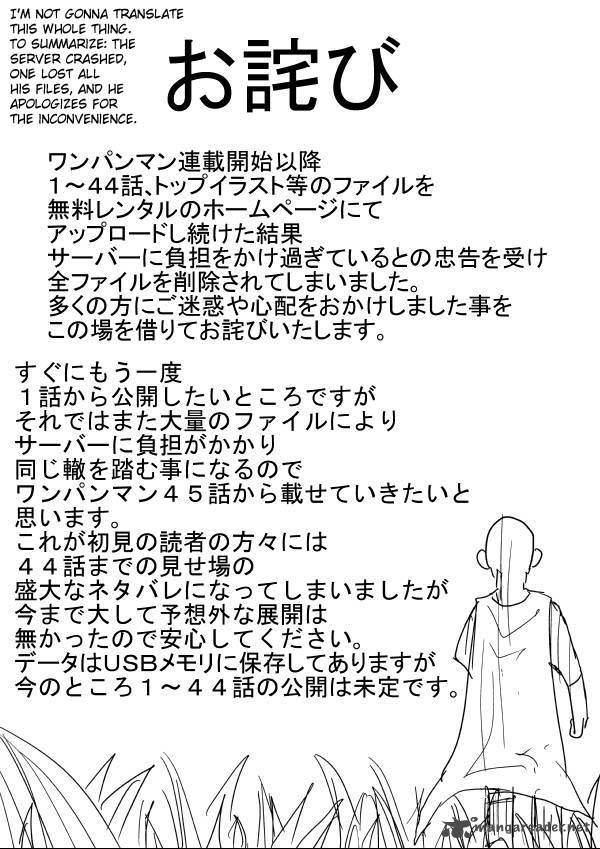 I'M NOT GONNA TRANSLATE
THIS WHOLE THING.
TO SUMMARIZE: THE
SERVER CRASHED,
ONE LOST ALL
HIS FILES, AND HE
APOLOGIZES FOR
THE INCONVENIENCE.
お詫び
ワンパンマン連載開始以降
１～４４話、トップイラスト等のファイルを
無料レンタルのホームページにて
アップロードし続けた結果
サーバーに負担をかけ過ぎているとの忠告を受け
全ファイルを削除されてしまいました。
多くの方にご迷惑や心配をおかけしました事を
この場を借りてお詫びいたします。
すぐにもう一度
１話から公開したいところですが
それではまた大量のファイルにより
サーバーに負担がかかり
同じ轍を踏む事になるので
ワンパンマン４５話から載せていきたいと
思います。
これが初見の読者の方々には
４４話までの見せ場の
盛大なネタバレになってしまいましたが
今まで大して予想外な展開は
無かったので安心してください。
データはＵＳＢメモリに保存してありますが
今のところ１～４４話の公開は未定です。
mangareader.net